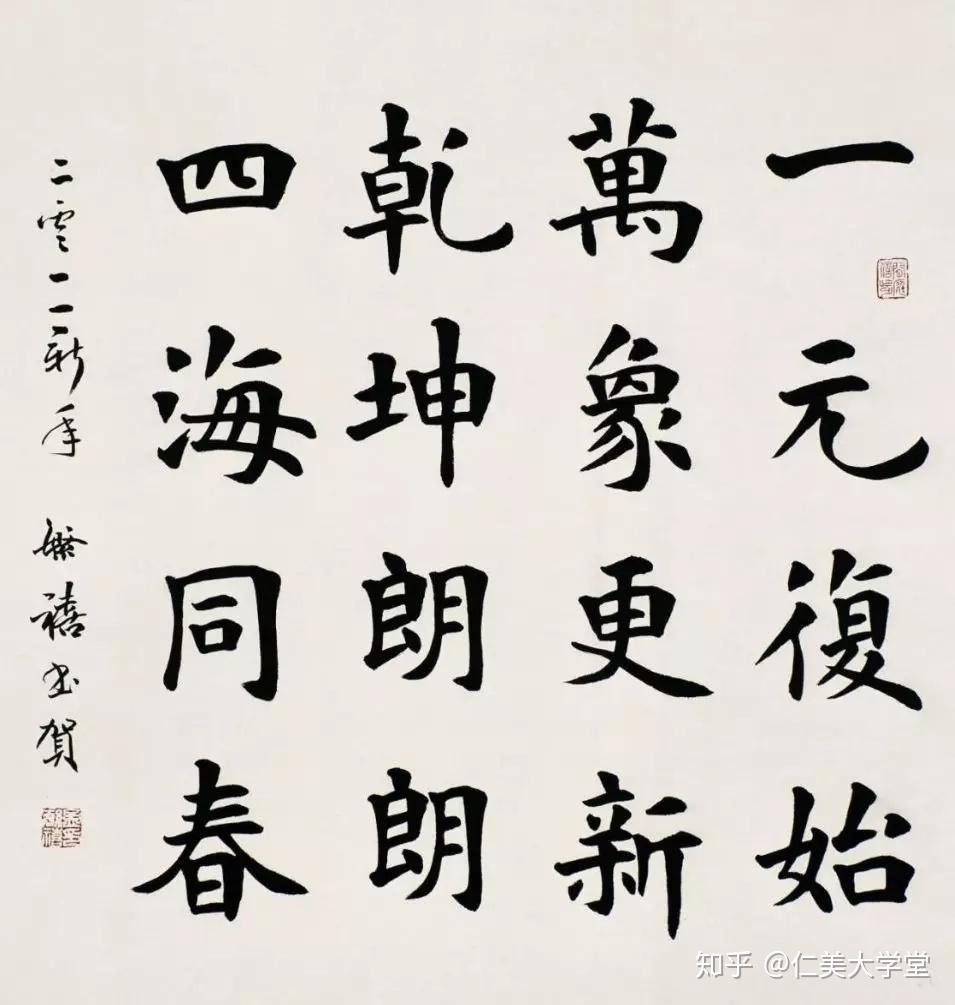 一元復始
萬象更新
乾坤朗朗
四海同春
二零一一新年 盤禧书贺
知乎 @仁美大学堂